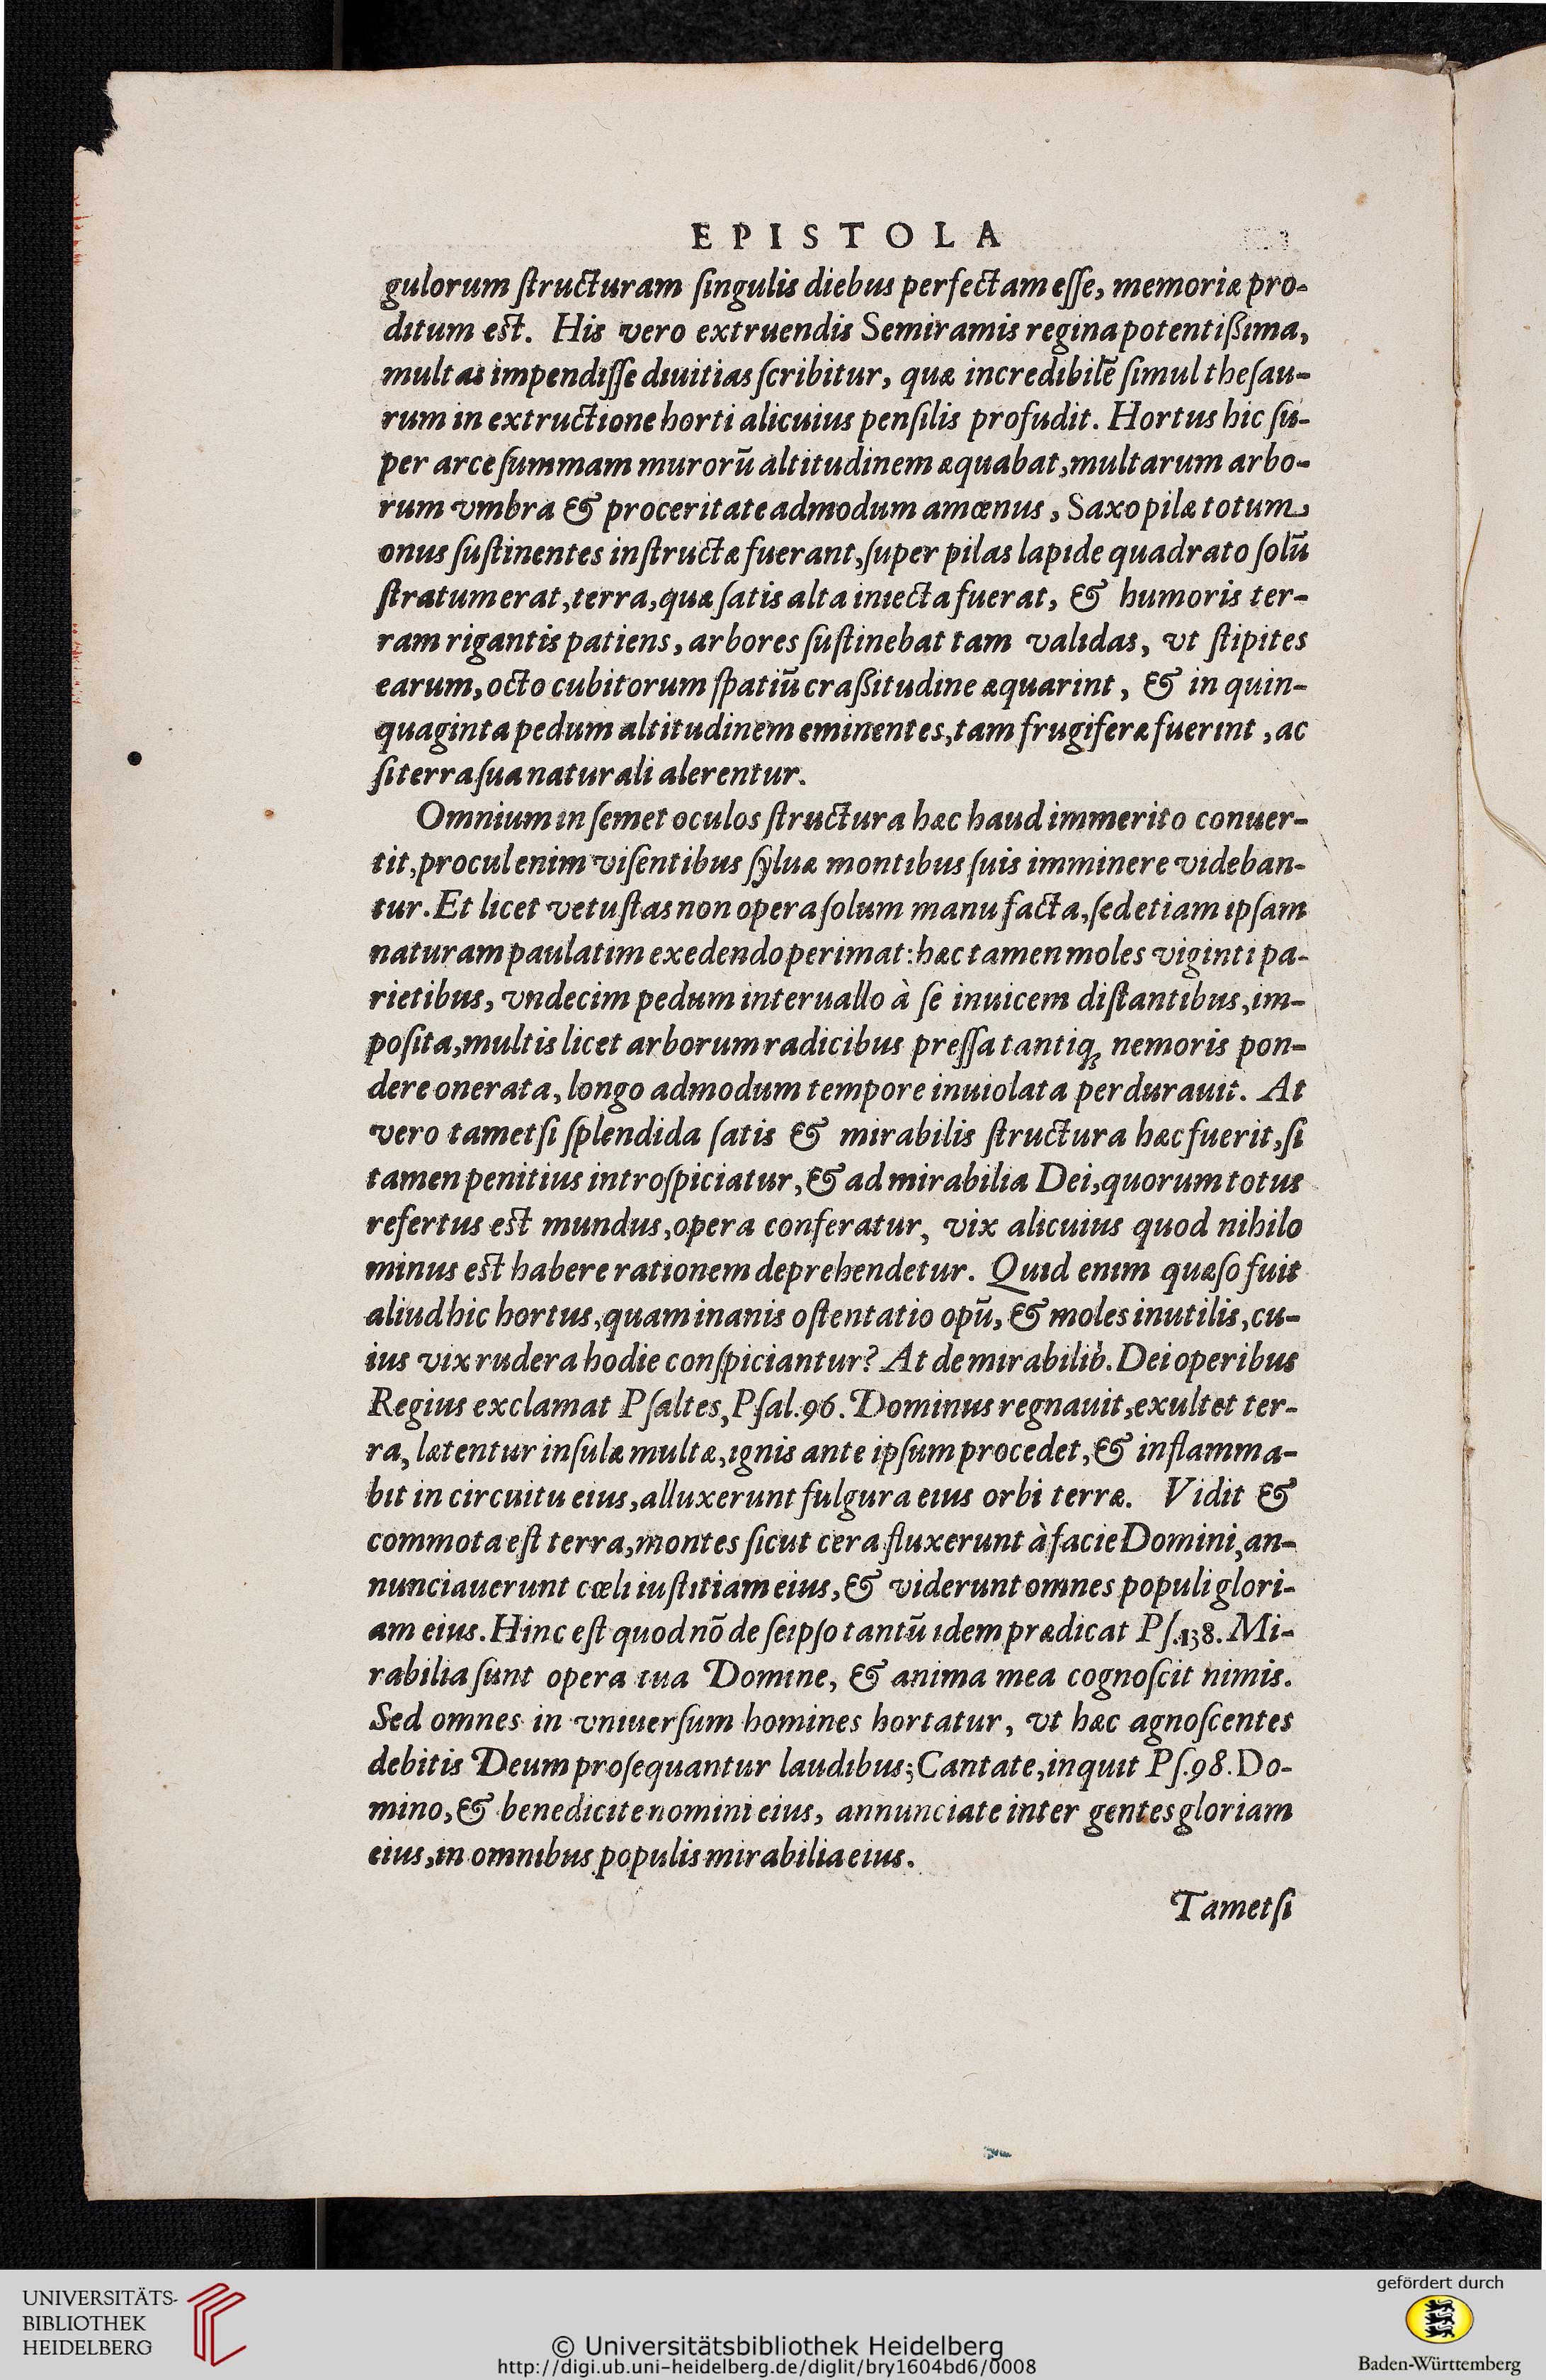 EPISTOLA
gulorum ſtructuram ſingulis diebus perfectam eſſe, memoriæ pro-
ditum est. His vero extruendis Semiramis regina potentiſsima,
multas impendiſſe diuitias ſcribitur, quæ incredibilē ſimul theſau-
rum in extructione horti alicuius penſilis profudit. Hortus hic ſu-
per arce ſummam murorū altitudinem æquabat, multarum arbo-
rum vmbra & proceritate admodum amœnus, Saxo pilæ totum
onus ſuſtinentes inſtructæ fuerant, ſuper pilas lapide quadrato ſolū
ſtratum erat, terra, quæ ſatis alta iniecta fuerat, & humoris ter-
ram rigantis patiens, arbores ſuſtinebat tam validas, vt ſtipites
earum, octo cubitorum ſpatiū craſsitudine æquarint, & in quin-
quaginta pedum altitudinem eminentes, tam frugiferæ fuerint, ac
ſi terra ſua naturali alerentur.
Omnium in ſemet oculos ſtructura hæc haud immerito conuer-
tit, procul enim viſentibus ſyluæ montibus ſuis imminere videban-
tur. Et licet vetuſtas non opera ſolum manu facta, ſed etiam ipſam
naturam paulatim exedendo perimat: hæc tamen moles viginti pa-
rietibus, vndecim pedum interuallo à ſe inuicem diſtantibus, im-
poſita, multis licet arborum radicibus preſſa tantiq́; nemoris pon-
dere onerata, longo admodum tempore inuiolata perdurauit. At
vero tametſi ſplendida ſatis & mirabilis ſtructura hæc fuerit, ſi
tamen penitius introſpiciatur, & ad mirabilia Dei, quorum totus
refertus est mundus, opera conferatur, vix alicuius quod nihilo
minus est habere rationem deprehendetur. Quid enim quæſo fuit
aliud hic hortus, quam inanis oſtentatio opū, & moles inutilis, cu-
ius vix rudera hodie conſpiciantur? At de mirabilib. Dei operibus
Regius exclamat Pſaltes, Pſal. 96. Dominus regnauit, exultet ter-
ra, lætentur inſulæ multæ, ignis ante ipſum procedet, & inflamma-
bit in circuitu eius, alluxerunt fulgura eius orbi terræ. Vidit &
commota eſt terra, montes ſicut cera fluxerunt à facie Domini, an-
nunciauerunt cœli iuſtitiam eius, & viderunt omnes populi glori-
am eius. Hinc eſt quod nō de ſeipſo tantū idem prædicat Pſ. 138. Mi-
rabilia ſunt opera tua Domine, & anima mea cognoſcit nimis.
Sed omnes in vniuerſum homines hortatur, vt hæc agnoſcentes
debitis Deum proſequantur laudibus; Cantate, inquit Pſ. 98. Do-
mino, & benedicite nomini eius, annunciate inter gentes gloriam
eius, in omnibus populis mirabilia eius.
Tametſi
UNIVERSITÄTS-
BIBLIOTHEK
HEIDELBERG
© Universitätsbibliothek Heidelberg
http://digi.ub.uni-heidelberg.de/diglit/bry1604bd6/0008
gefördert durch
Baden-Württemberg